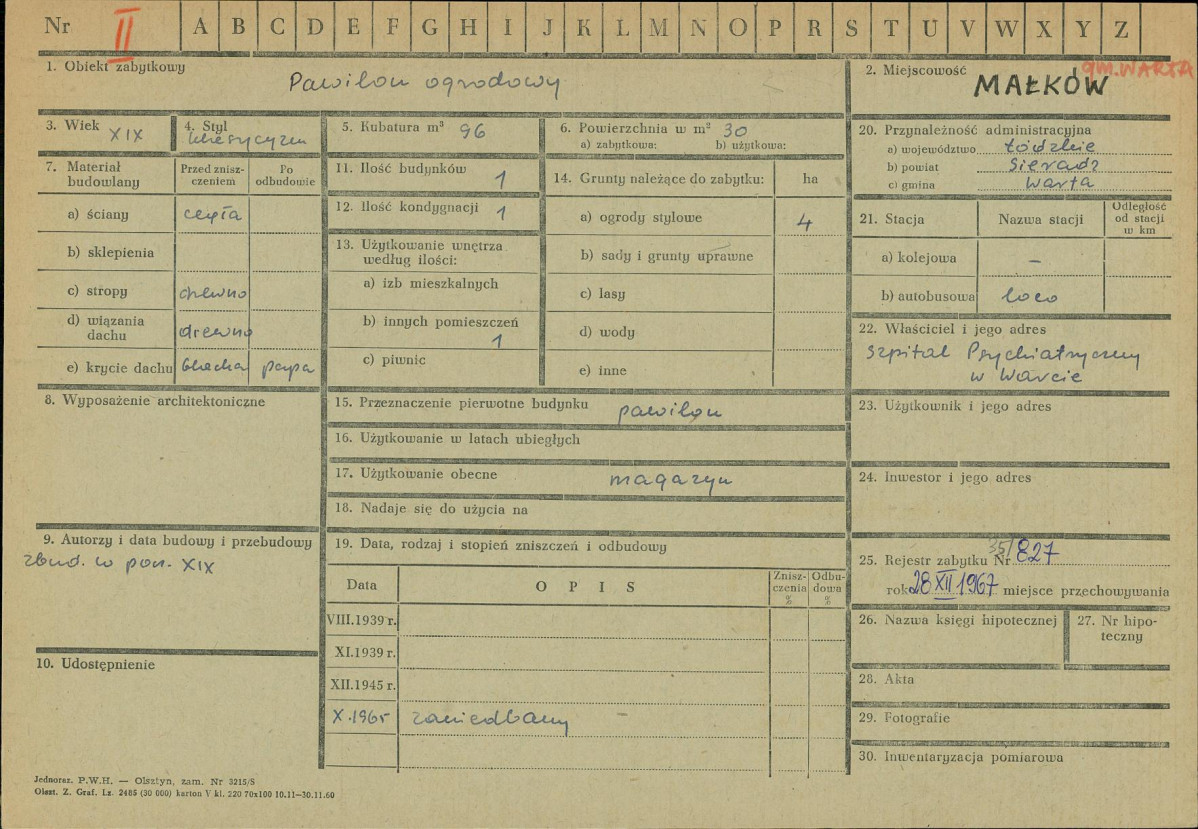 Nr II A B C D E F G H I J K L M N O P R S T U V W X Y Z
1. Obiekt zabytkowy
Pawilon ogrodowy
2. Miejscowość
gm. WARTA
MAŁKÓW
3. Wiek XIX
4. Styl
klasycyzm
5. Kubatura m³ 96
6. Powierzchnia w m² 30
a) zabytkowa: b) użytkowa:
20. Przynależność administracyjna
a) województwo łódzkie
b) powiat Sieradz
c) gmina Warta
7. Materiał
budowlany
Przed znisz-
czeniem
Po
odbudowie
a) ściany cegła
b) sklepienia
c) stropy drewno
d) wiązania
dachu drewno
e) krycie dachu blacha papa
11. Ilość budynków 1
12. Ilość kondygnacji 1
13. Użytkowanie wnętrza
według ilości:
a) izb mieszkalnych
b) innych pomieszczeń
1
c) piwnic
14. Grunty należące do zabytku: ha
a) ogrody stylowe 4
b) sady i grunty uprawne
c) lasy
d) wody
e) inne
21. Stacja Nazwa stacji
Odległość
od stacji
w km
a) kolejowa –
b) autobusowa loco
22. Właściciel i jego adres
Szpital Psychiatryczny
w Warcie
8. Wyposażenie architektoniczne
15. Przeznaczenie pierwotne budynku pawilon
16. Użytkowanie w latach ubiegłych
17. Użytkowanie obecne magazyn
18. Nadaje się do użycia na
23. Użytkownik i jego adres
24. Inwestor i jego adres
9. Autorzy i data budowy i przebudowy
zbud. w poł. XIX
19. Data, rodzaj i stopień zniszczeń i odbudowy
Data OPIS
Znisz-
czenia
%
Odbu-
dowa
%
VIII.1939 r.
XI.1939 r.
XII.1945 r.
X.1965 zaniedbany
25. Rejestr zabytku Nr 35/827
rok 28 XII 1967 miejsce przechowywania
26. Nazwa księgi hipotecznej
27. Nr hipo-
teczny
10. Udostępnienie
28. Akta
29. Fotografie
30. Inwentaryzacja pomiarowa
Jednoraz. P.W.H. — Olsztyn, zam. Nr 3215/S
Olszt. Z. Graf. Lz. 2485 (30 000) karton V kl. 220 70x100 10.11—30.11.60